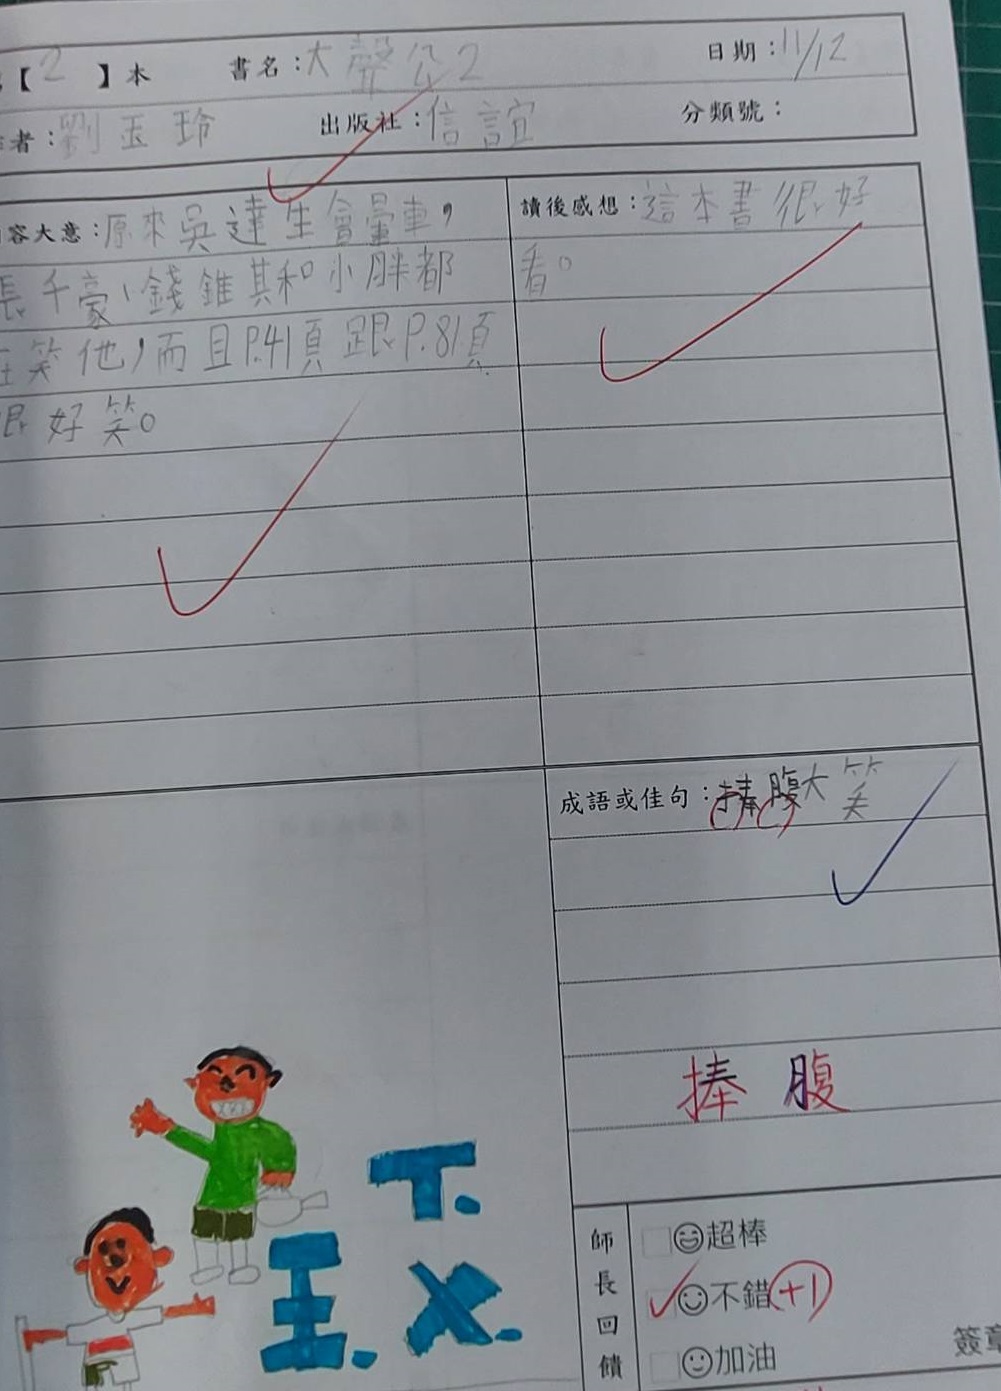 【2】本 書名：大聲公2 日期：11/12
者：劉玉玲 出版社：信誼 分類號：
容大意：原來吳達生會暈車，
張千豪、錢錐其和小胖都
在笑他，而且P.41頁跟P.81頁
很好笑。
讀後感想：這本書很好
看。
成語或佳句：捧腹大笑
捧腹
T.
王.X.
師長回饋
超棒
不錯 +1
加油
簽章